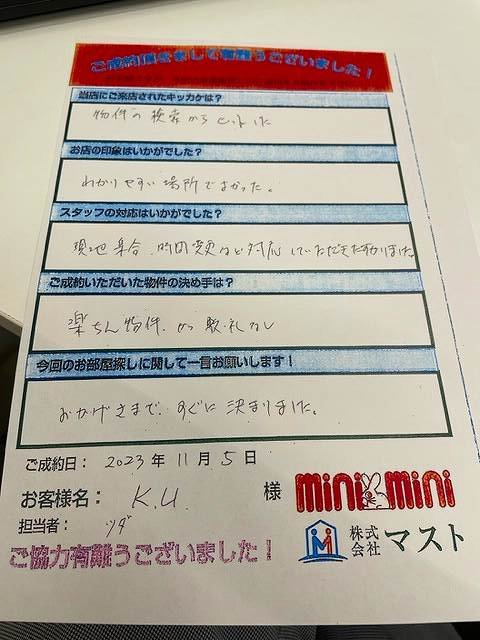 ご成約頂きまして有難うございました！
当店にご来店されたキッカケは？
物件の検索からヒットした
お店の印象はいかがでした？
わかりやすい場所でよかった。
スタッフの対応はいかがでした？
現地集合、時間変更など対応していただきた助かりました。
ご成約いただいた物件の決め手は？
楽ちん物件、敷礼なし
今回のお部屋探しに関して一言お願いします！
おかげさまで、すぐに決まりました。
ご成約日： 2023 年 11 月 5 日
お客様名： K.U. 様
担当者： ツダ
ご協力有難うございました！
mini mini
株式会社 マスト